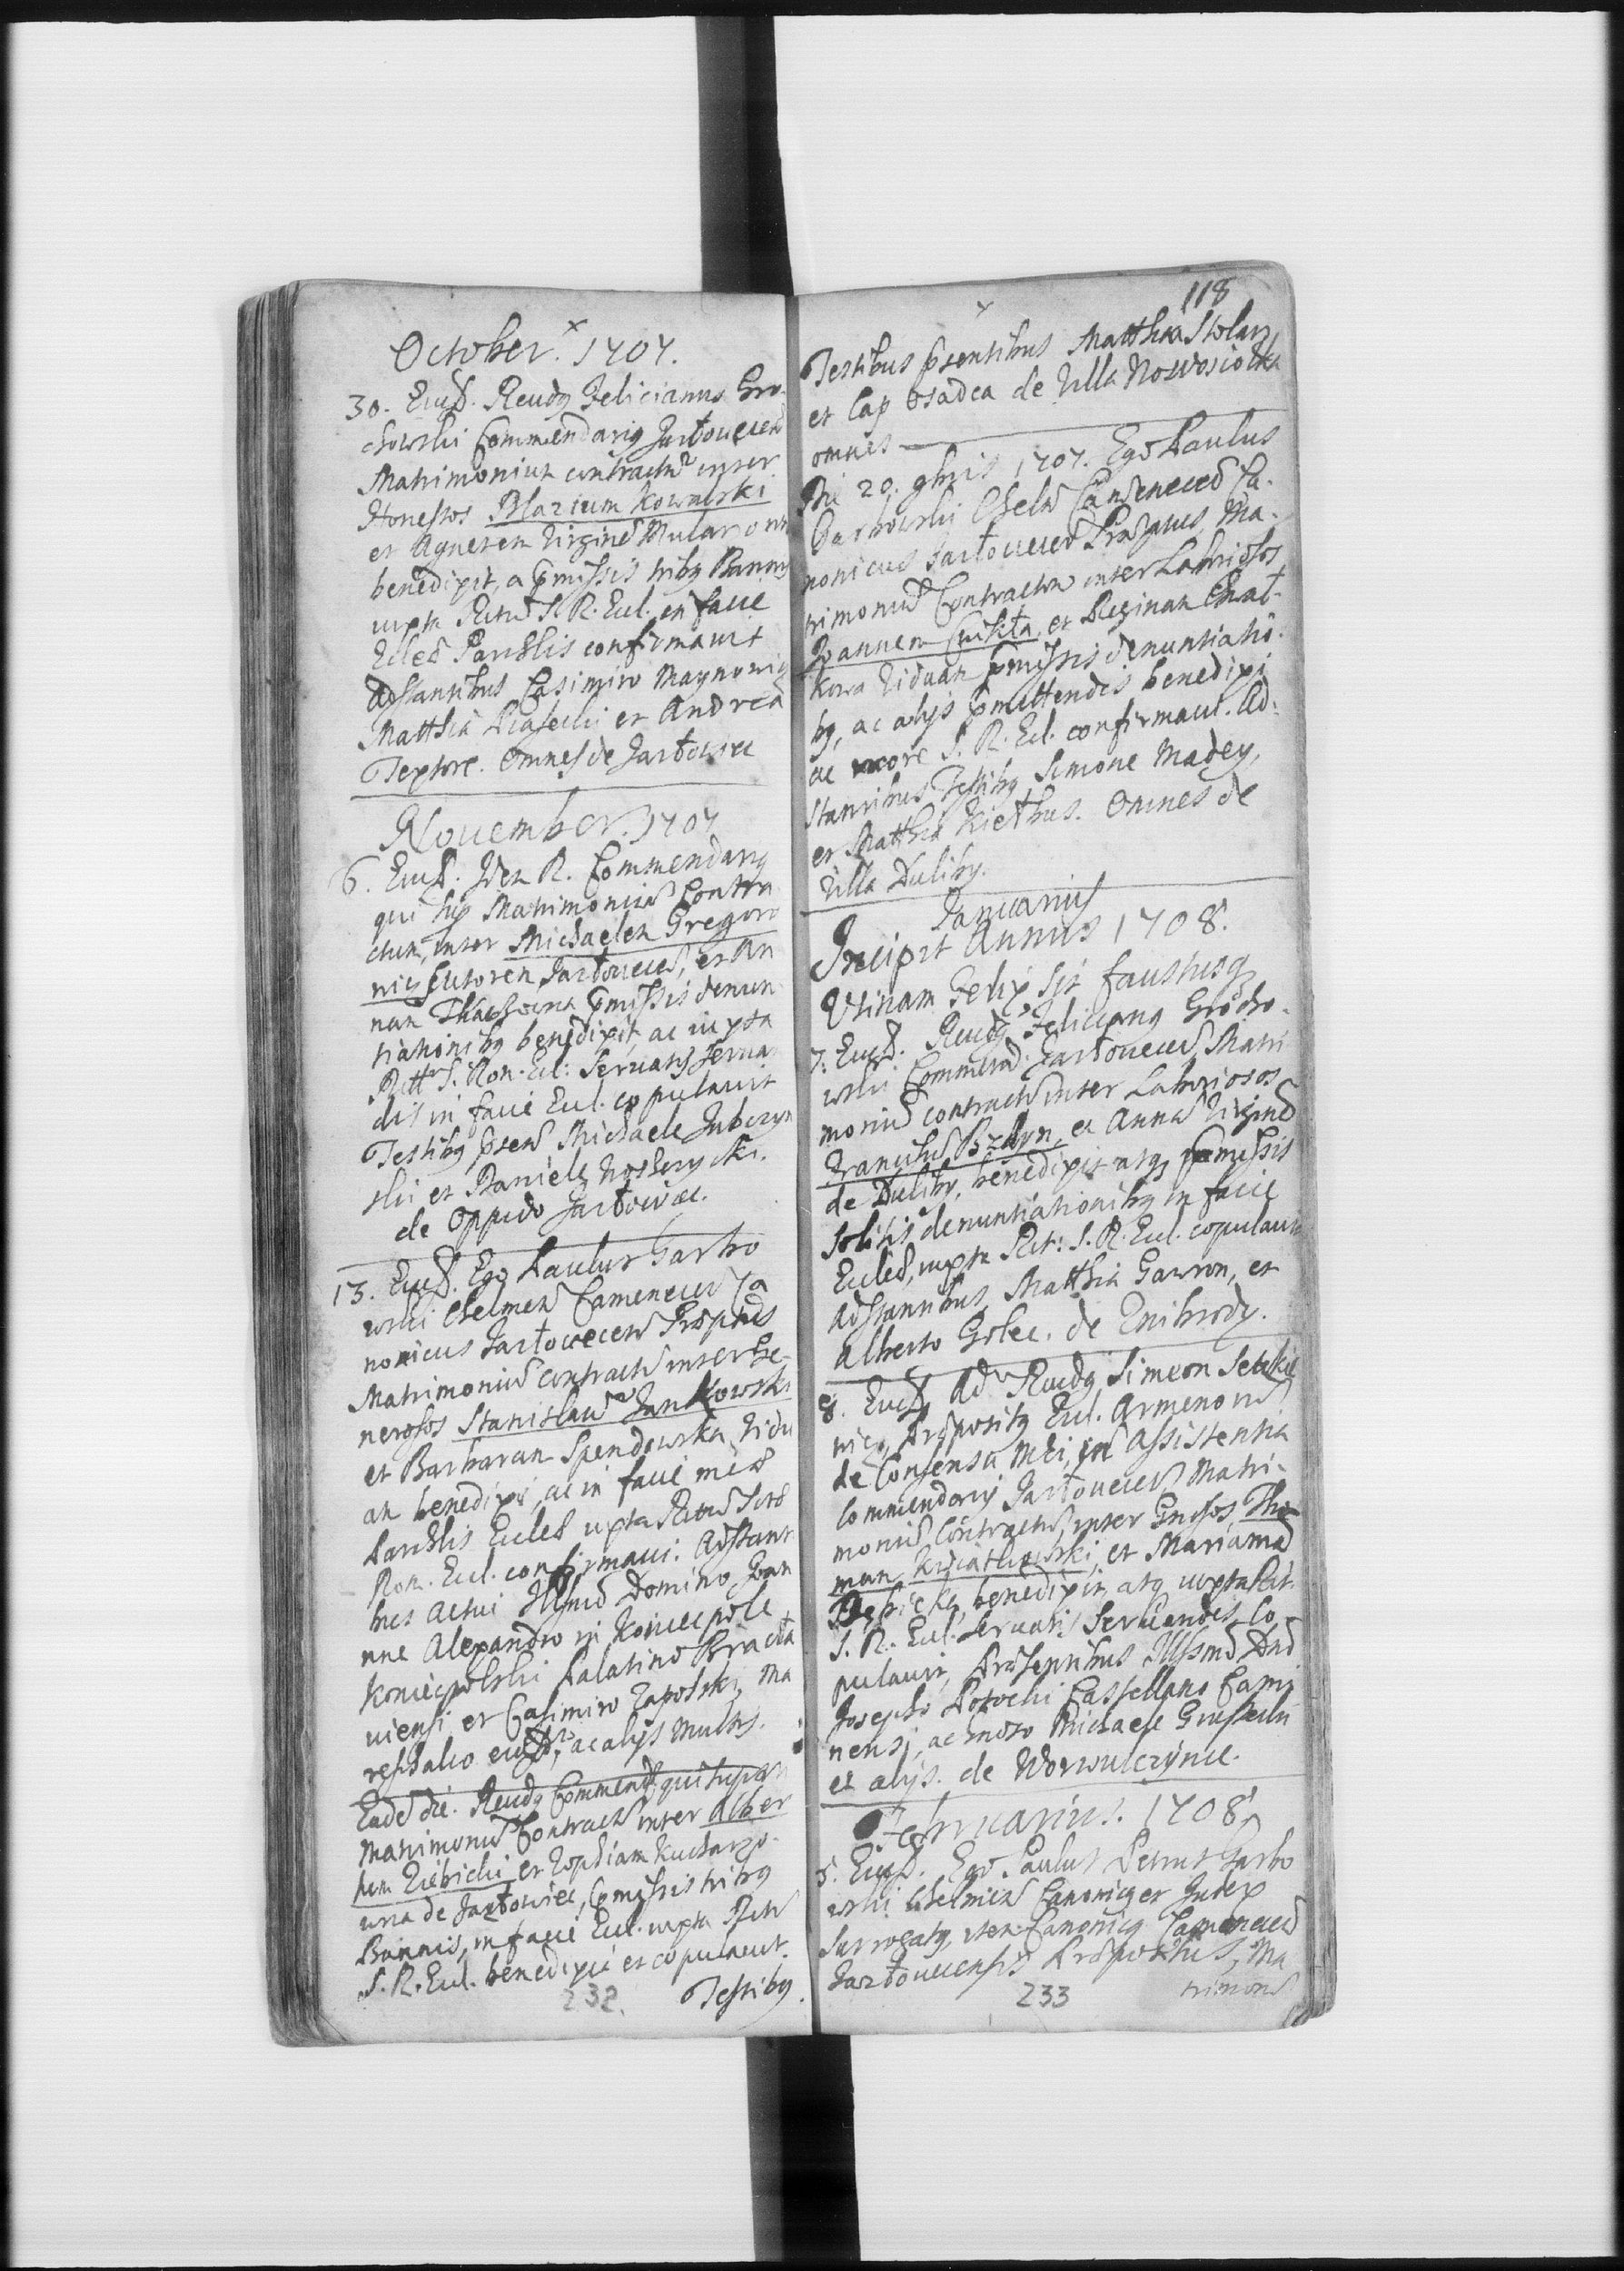 October. 1707.
30. Eiusd. Reudg Felicianus Gro-
chowski Commendarig Jazłouecen
Matrimonium contractu inter
Honestos Blasium Kowalski
et Agneten Virgine Mularown
benedixit, ac pmissis tribg Bannis
iuxta Ritu S. R. Eccl. in facie
Eccles Parchlis confirmauit
Adstantibus Casimiro
Matthia et Andrea
Textore. Omnes de Jazłowiec
Nouember. 1707
6. Eiusd. Idem R. Commendarig
qui sup Matrimoniu Contra
ctum, inter Michaelem Gregoro
nam pmissis denun
tiationibg benedixit, ac iuxta
Ritu S. Rom. Ecl: Seruatis Serua
dis in facie Eccl. copulauit
Testibg psen Michaele
ski et Daniele
de Oppido Jazłowiec.
13. Eiusd. Ego Paulus Garbo
wski Chelmen Camenecen Ca
nonicus Jazłouecen Præptus
Matrimoniu contractu inter Ge-
nerosos Stanislau Jankowski
et Barbaram Spendowska Vidu
am benedixi, ac in facie meæ
Parchlis Eccles iuxta Ritu Sctæ
Rom. Eccl. confirmaui. Adstant
bus actui Illmo Domino Joan
nne Alexandro in Koniecpole
Koniecpolski Palatino Bracła
uiensi, et Casimiro Zapolski, Ma
reschalco eiusd, ac alys multis.
Eade die. Reudg Commend qui supra
Matrimoniu Contractu inter Alber
tum Ziebicki et Zophiam Kucharzo-
wna de Jazłowiec, pmissis tribg
Bannis, in facie Eccl. iuxta Ritu
S. R. Eccl. benedixi et copulauit.
Testibg
232.
118
Testibus psentibus Matthia Stolarz
et Cap Osadca de Villa Nowosiołka
omnes
Die 20. 9bris 1707. Ego Paulus
Garbowski Chelm Camenecen Ca-
nonicus Jazłouecen Præptus, Ma-
trimoniu Contractu inter Labriosos
Joannem et Reginam
kowa Viduam pmissis denuntiatio-
bg, ac alys pmittendis benedixi
ac more S. R. Ecl. confirmaui. Ad-
stantibus Testibg Simone Madey,
et Matthia Kiethus. Omnes de
Villa Duliby.
Januarius
Incipit Annus 1708.
Vtinam Felix sit faustusq
7. Eiusd. Reudg Feliciang Grocho-
wski Commend: Jazłouecen Matri
moniu contractu inter Laboriosos
et Anna Virgine
de Duliby, benedixit atq pmissis
solitis denuntiationibg in facie
Eccles, iuxta Rit: S. R. Eccl. copulauit
Adstantibus Matthia Gawron, et
Alberto Golec. de Znibrody.
8. Eiusd Adm Reudg Simeon
wicz, Præpositg Eccl. Armenoru
de Consensu Mei, in Assistentia
Commendarij Jazłouecen Matri-
moniu Contractu, inter Gnrosos Tho-
mam Kwiatkowski, et Mariama
Debicka, benedixit, atq iuxta Rit.
S. R. Eccl. Seruatis Seruandis, Co
pulauit, Præsentibus Illssmo Dno
Josepho Potocki Castellano Cami
nensi, ac Gnoso Michaele
et alys. de Worwulczynce.
Februarius. 1708.
5. Eiusd. Ego Paulus Petrus Garbo
wski Chelmen Canonicg et Judex
Surrogatg, item Canonicg Camenecen
Jazłouecensis Præpositus, Ma
trimoniu
233